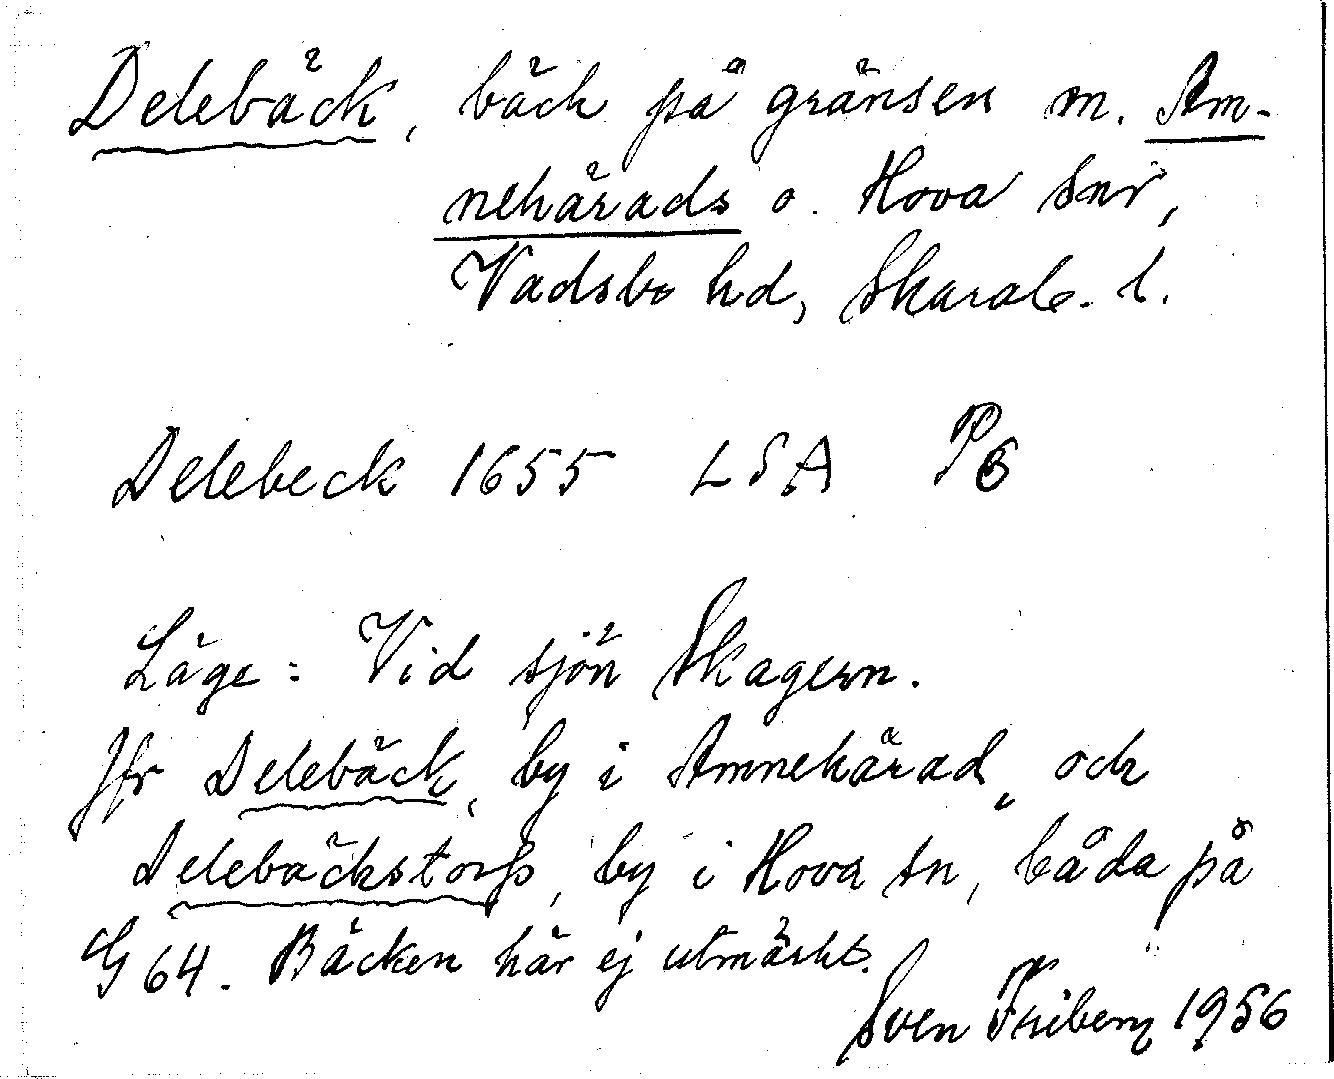 Delebäck, bäck på gränsen m. Am-
nehärads o. Hova snr,
Vadsbo hd, Skarab. l.
Delebeck 1655 LSA P6
Läge: Vid sjön Skagern.
Jfr Delebäck, by i Amnehärad, och
Delebäckstorp, by i Hova sn, båda på
G 64. Bäcken här ej utmärkt.
Sven Friberg 1956